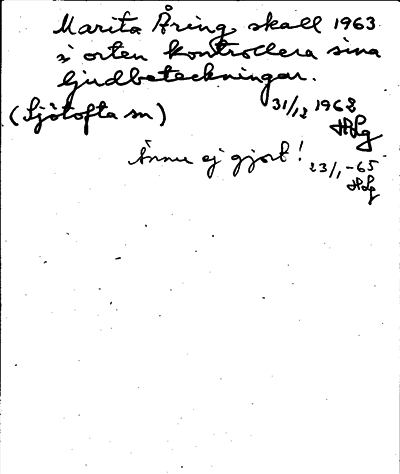 Marita Åring skall 1963
i orten kontrollera sina
ljudbeteckningar.
31/12 1962
(Sjötofta sn) HSg
Ännu ej gjort! 23/1 -65
HSg